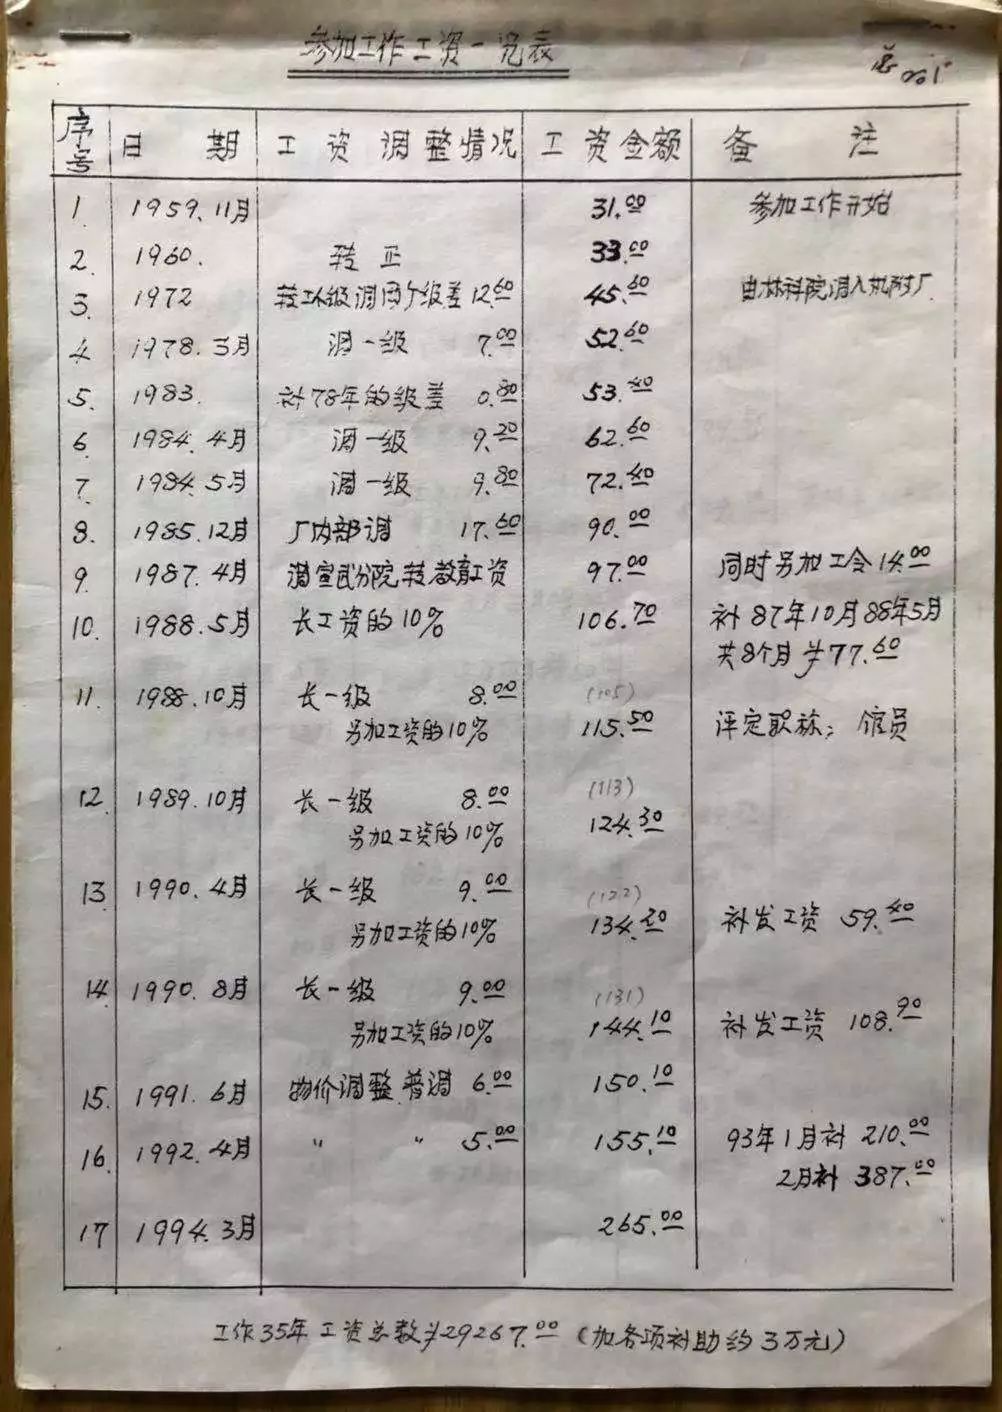 参加工作工资一览表
序号 日期 工资调整情况 工资金额 备注
1 1959.11月 31.00 参加工作开始
2. 1960. 转正 33.00
3. 1972 转工八级调两个级差 12.60 45.60 由林科院调入机附厂
4 1978.3月 调一级 7.00 52.60
5. 1983. 补78年的级差 0.80 53.40
6 1984.4月 调一级 9.20 62.60
7. 1984.5月 调一级 9.80 72.40
8. 1985.12月 厂内部调 17.60 90.00
9. 1987.4月 调宣武分院转教育工资 97.00 同时另加工令14.00
10. 1988.5月 长工资的10% 106.70 补87年10月88年5月
共8个月为77.60
11. 1988.10月 长一级 8.00 (105)
另加工资的10% 115.50 评定职称: 馆员
12. 1989.10月 长一级 8.00 (113)
另加工资的10% 124.30
13. 1990.4月 长一级 9.00 (122)
另加工资的10% 134.20 补发工资 59.40
14. 1990.8月 长一级 9.00 (131)
另加工资的10% 144.10 补发工资 108.90
15. 1991.6月 物价调整.普调 6.00 150.10
16. 1992.4月 〃 〃 5.00 155.10 93年1月补 210.00
2月补 387.00
17 1994.3月 265.00
工作35年工资总数为29267.00(加各项补助约3万元)